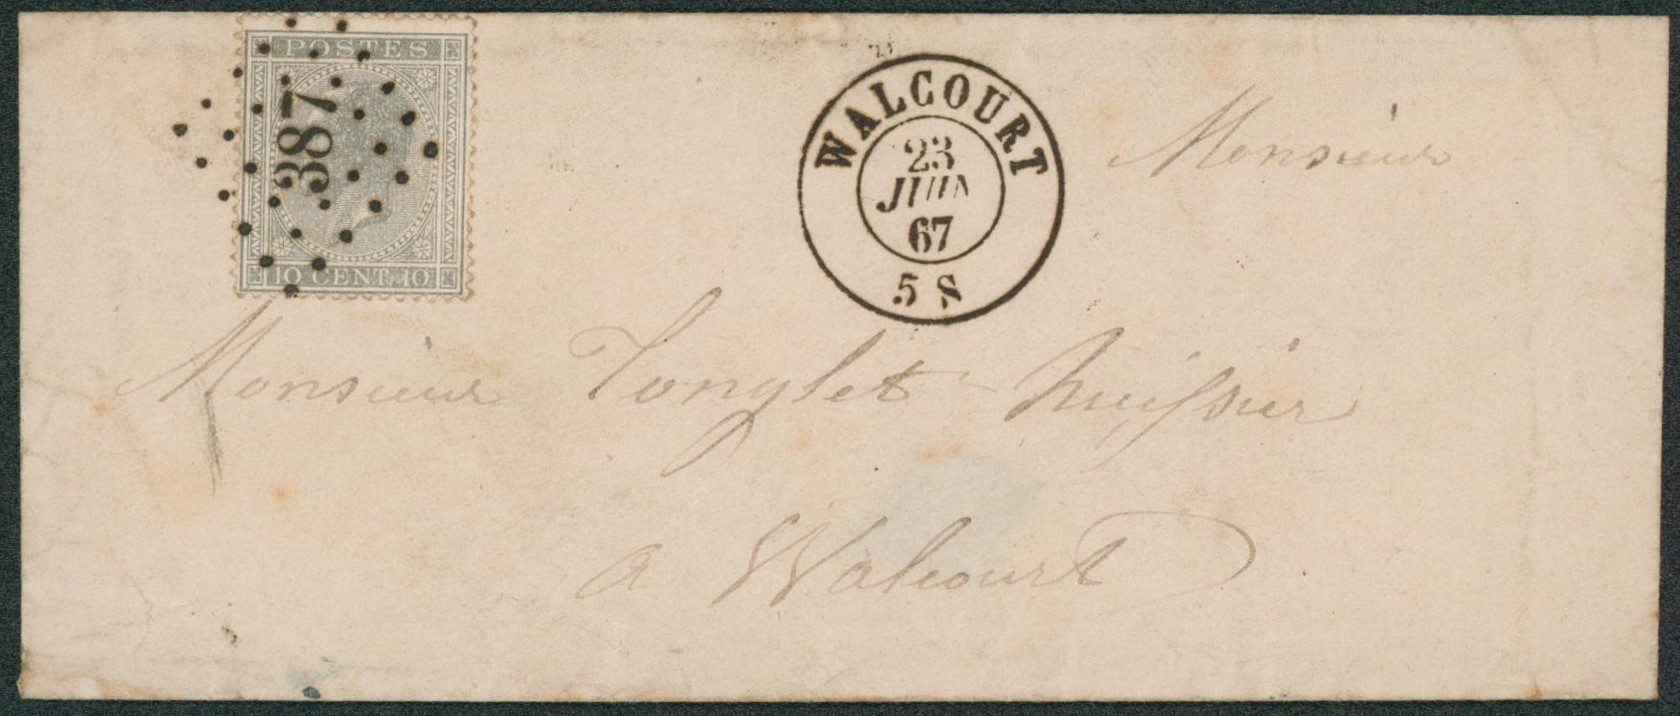 POSTES
387
10 CENT. 10
WALCOURT
23
JUIN
67
5 S
Monsieur
Monsieur Tonglet huissier
a Walcourt